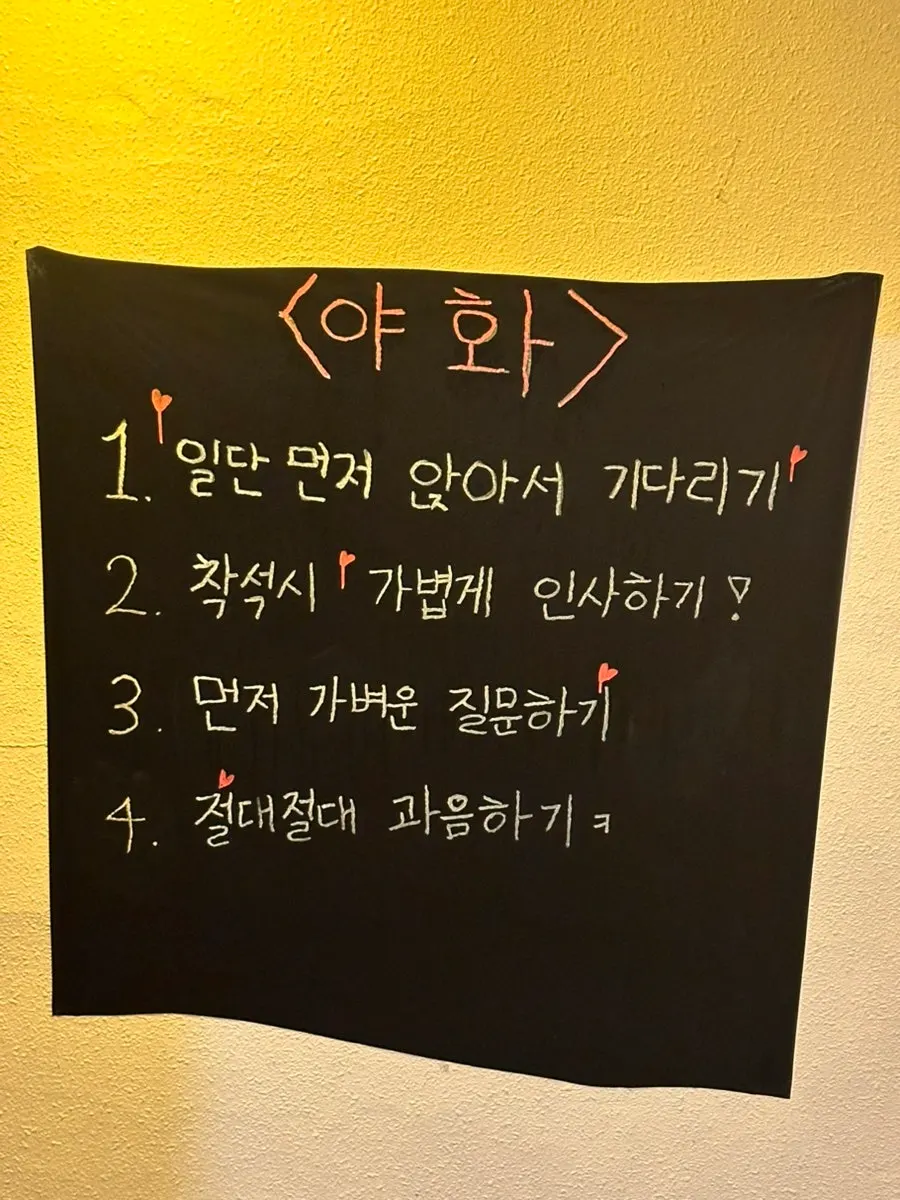 <야화>
1. 일단 먼저 앉아서 기다리기
2. 착석시 가볍게 인사하기!
3. 먼저 가벼운 질문하기
4. 절대절대 과음하기 ㅋ